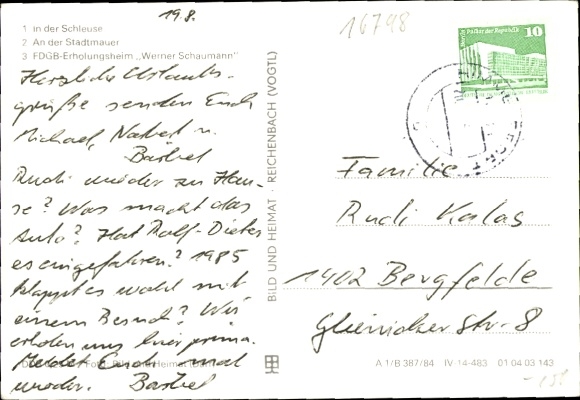 19.8.
16798
1 In der Schleuse
2 An der Stadtmauer
3 FDGB-Erholungsheim „Werner Schaumann"
Herzliche Urlaubs-
grüße senden Euch
Michael, u.
Bärbel
Rudi wieder zu Hau-
se? Was macht das
Auto? Hat Ralf-Dieter
es eingefahren? 1985
klappt es wohl mit
einem Besuch? Wir
erholen uns hier prima.
Meldet Euch mal
wieder. Bärbel
BILD UND HEIMAT · REICHENBACH (VOGTL)
Berlin Palast der Republik
10
DDR
Familie
Rudi Kalas
1402 Bergfelde
Glienicker Str. 8
A 1/B 387/84 IV-14-483 01 04 03 143